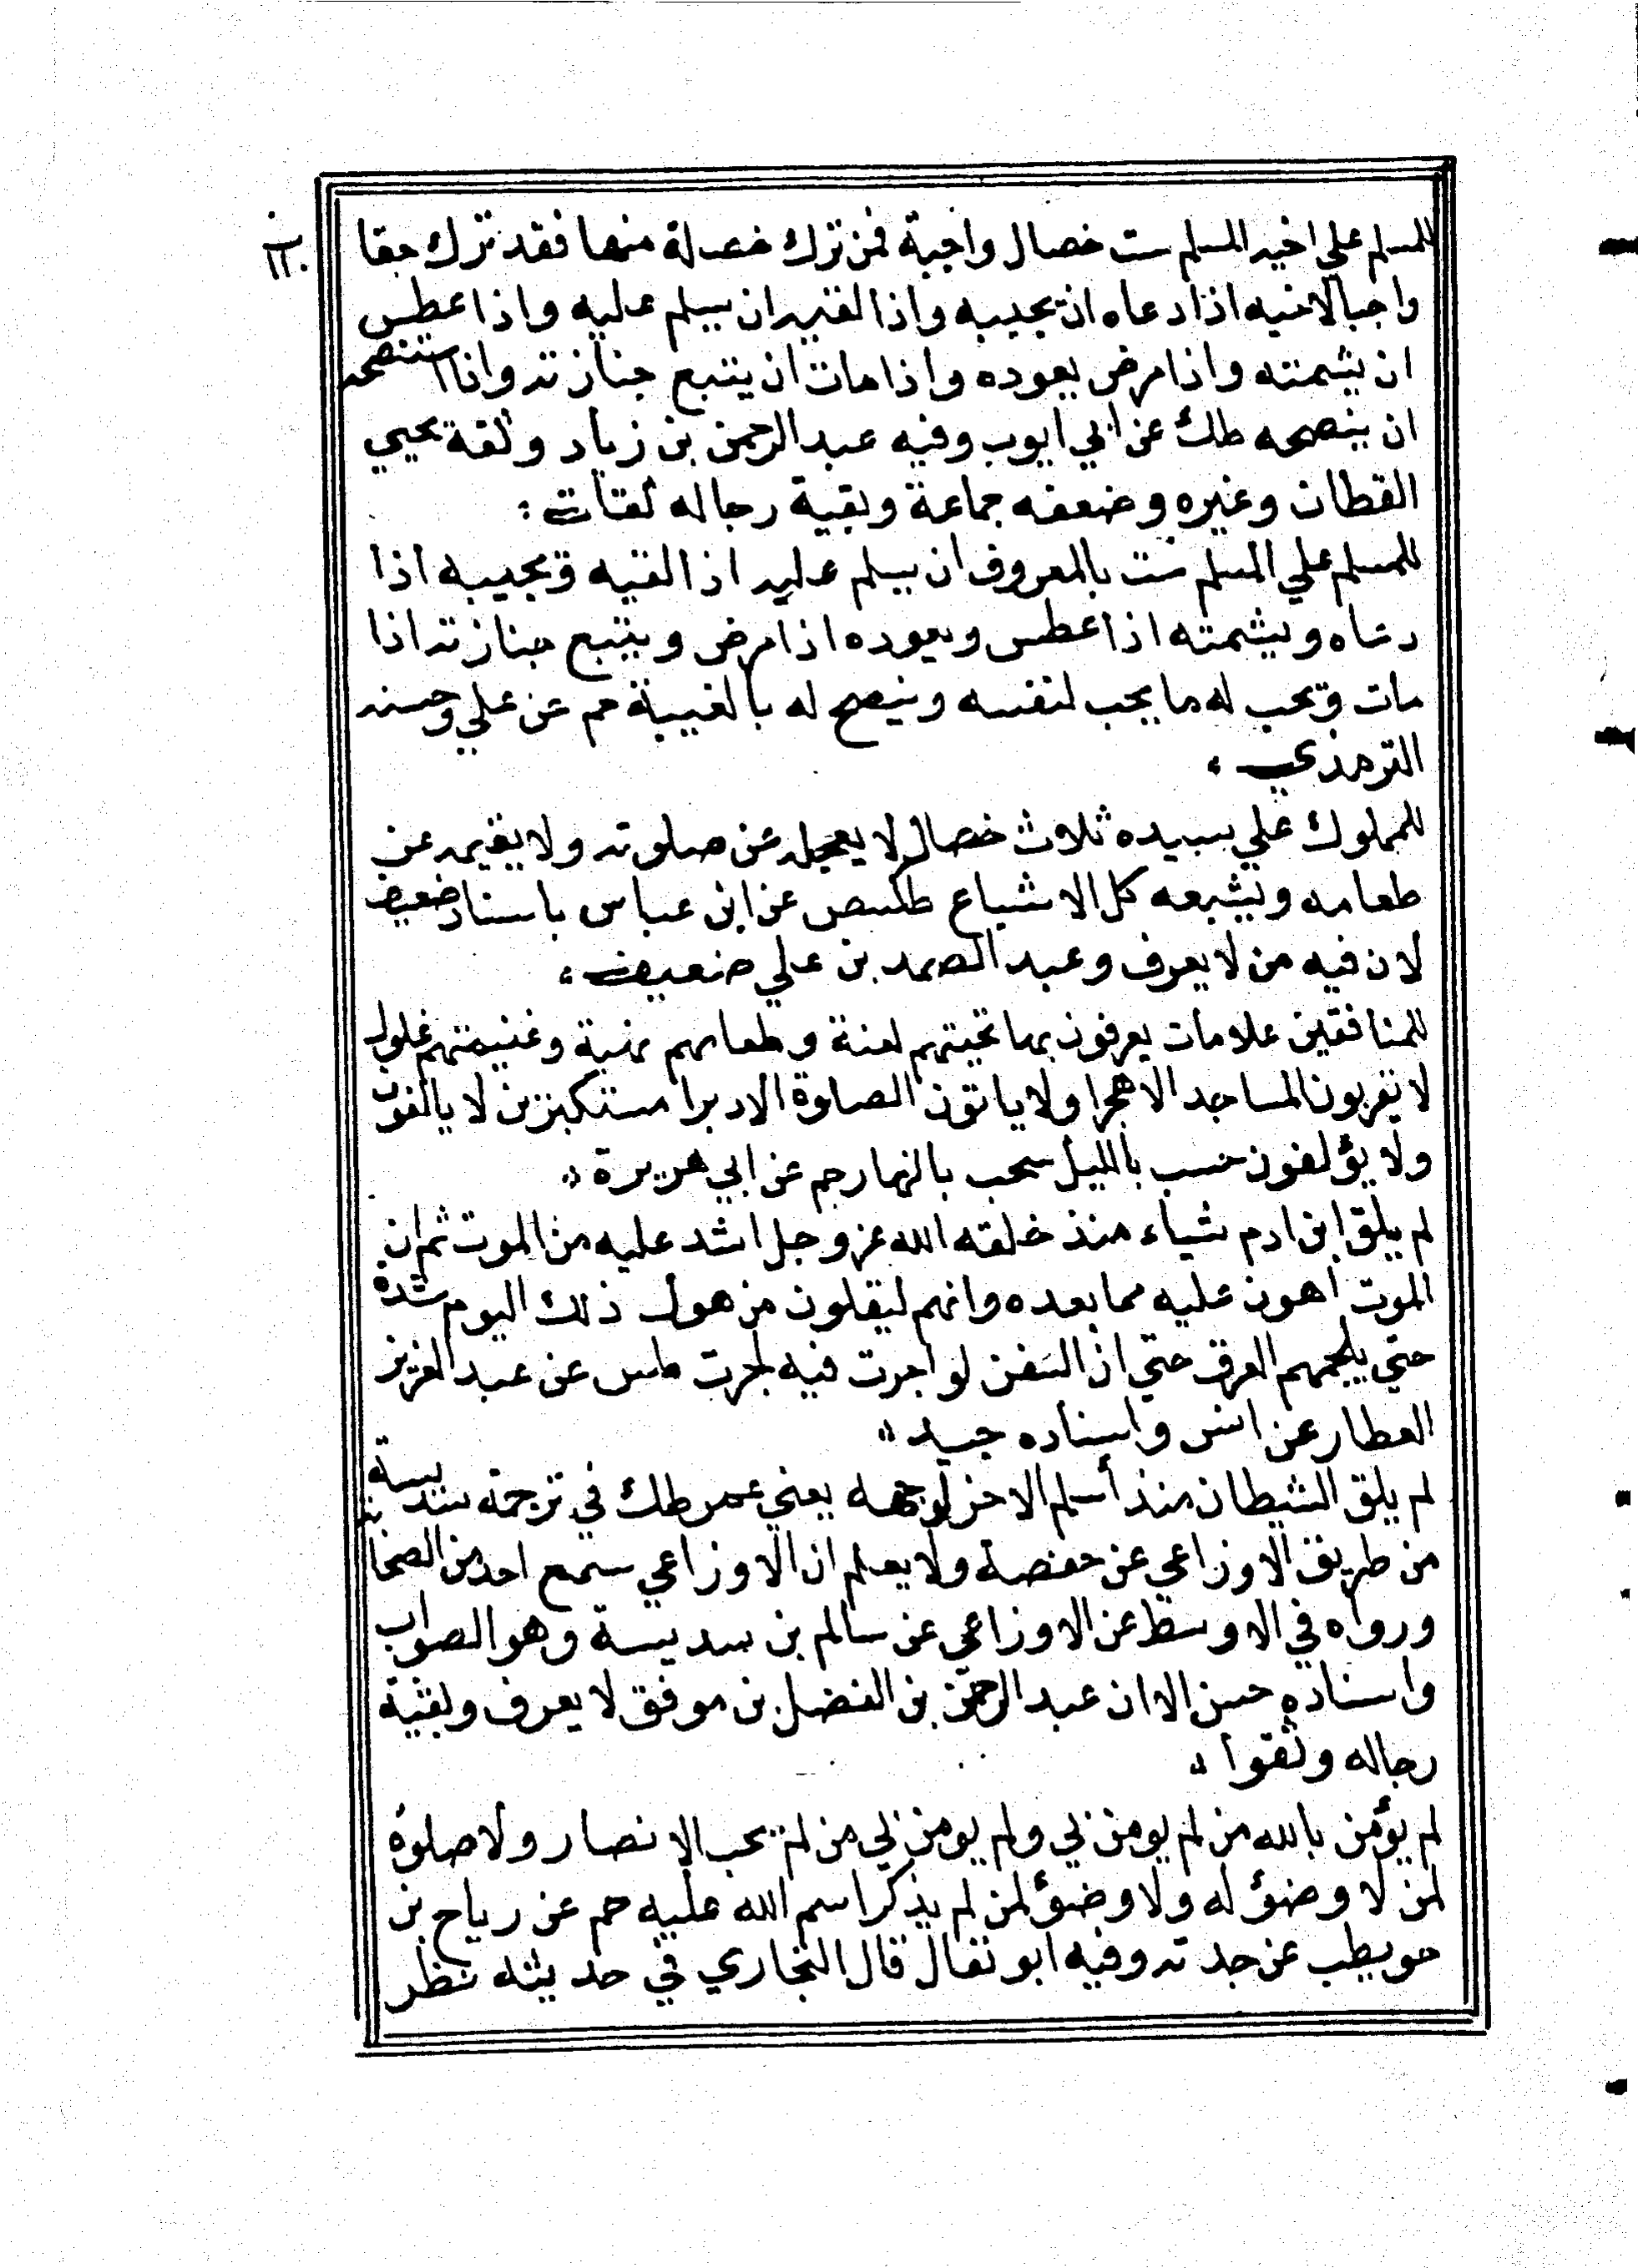 ١٢٠
للمسلم علي اخيه المسلم ست خصال واجبة فمن ترك خصلة منها فقد ترك حقا
واجبا لاخيه اذا دعاه ان يجيبه واذا لقيه ان يسلم عليه واذا عطس
ان يشمته واذا مرض يعوده واذا مات ان يتبع جنازته واذا استنصحه
ان ينصحه طك عن ابي ايوب وفيه عبد الرحمن بن زياد وثقة يحيي
القطان وغيره وضعفه جماعة وبقية رجاله ثقات :
للمسلم علي المسلم ست بالمعروف ان يسلم عليه اذا لقيه ويجيبه اذا
دعاه ويشمته اذا عطس ويعوده اذا مرض ويتبع جنازته اذا
مات ويحب له ما يحب لنفسه وينصح له بالغيبة حم عن علي وحسنه
الترمذي ،
للمملوك علي سيده ثلاث خصال لا يعجله عن صلوته ولا يقيمه عن
طعامه ويشبعه كل الاشباع طكص عن ابن عباس باسناد ضعيف
لان فيه من لا يعرف وعبد الصمد بن علي ضعيف ،
للمنافقين علامات يعرفون بها تحيتهم لعنة وطعامهم نهبة وغنيمتهم غلول
لا يقربون المساجد الا هجرا ولا ياتون الصلوة الا دبرا مستكبرين لا يالفون
ولا يؤلفون خسب بالليل سحب بالنهار حم عن ابي هريرة ،،
لم يلق ابن ادم شياء منذ خلقه الله عز وجل اشد عليه من الموت ثم ان
الموت اهون عليه مما بعده وانهم ليقلون من هول ذلك اليوم شدة
حتي يلجمهم العرق حتي ان السفن لو اجرت فيه لجرت طس عن عبد العزيز
العطار عن انس واسناده جيد ،،
لم يلق الشيطان منذ أسلم الا خر لوجهه يعني عمر طك في ترجمة سديسة
من طريق الاوزاعي عن حفصة ولا يعلم ان الاوزاعي سمع احد من الصحابة
ورواه في الاوسط عن الاوزاعي عن سالم بن سديسة وهو الصواب
واسناده حسن الا ان عبد الرحمن بن الفضل بن موفق لا يعرف وبقية
رجاله وثقوا ،،
لم يؤمن بالله من لم يومن بي ولم يومن بي من لم يحب الانصار ولا صلوة
لمن لا وضؤ له ولا وضؤ لمن لم يذكر اسم الله عليه حم عن رياح بن
حويطب عن جدته وفيه ابو ثفال قال البخاري في حديثه نظر